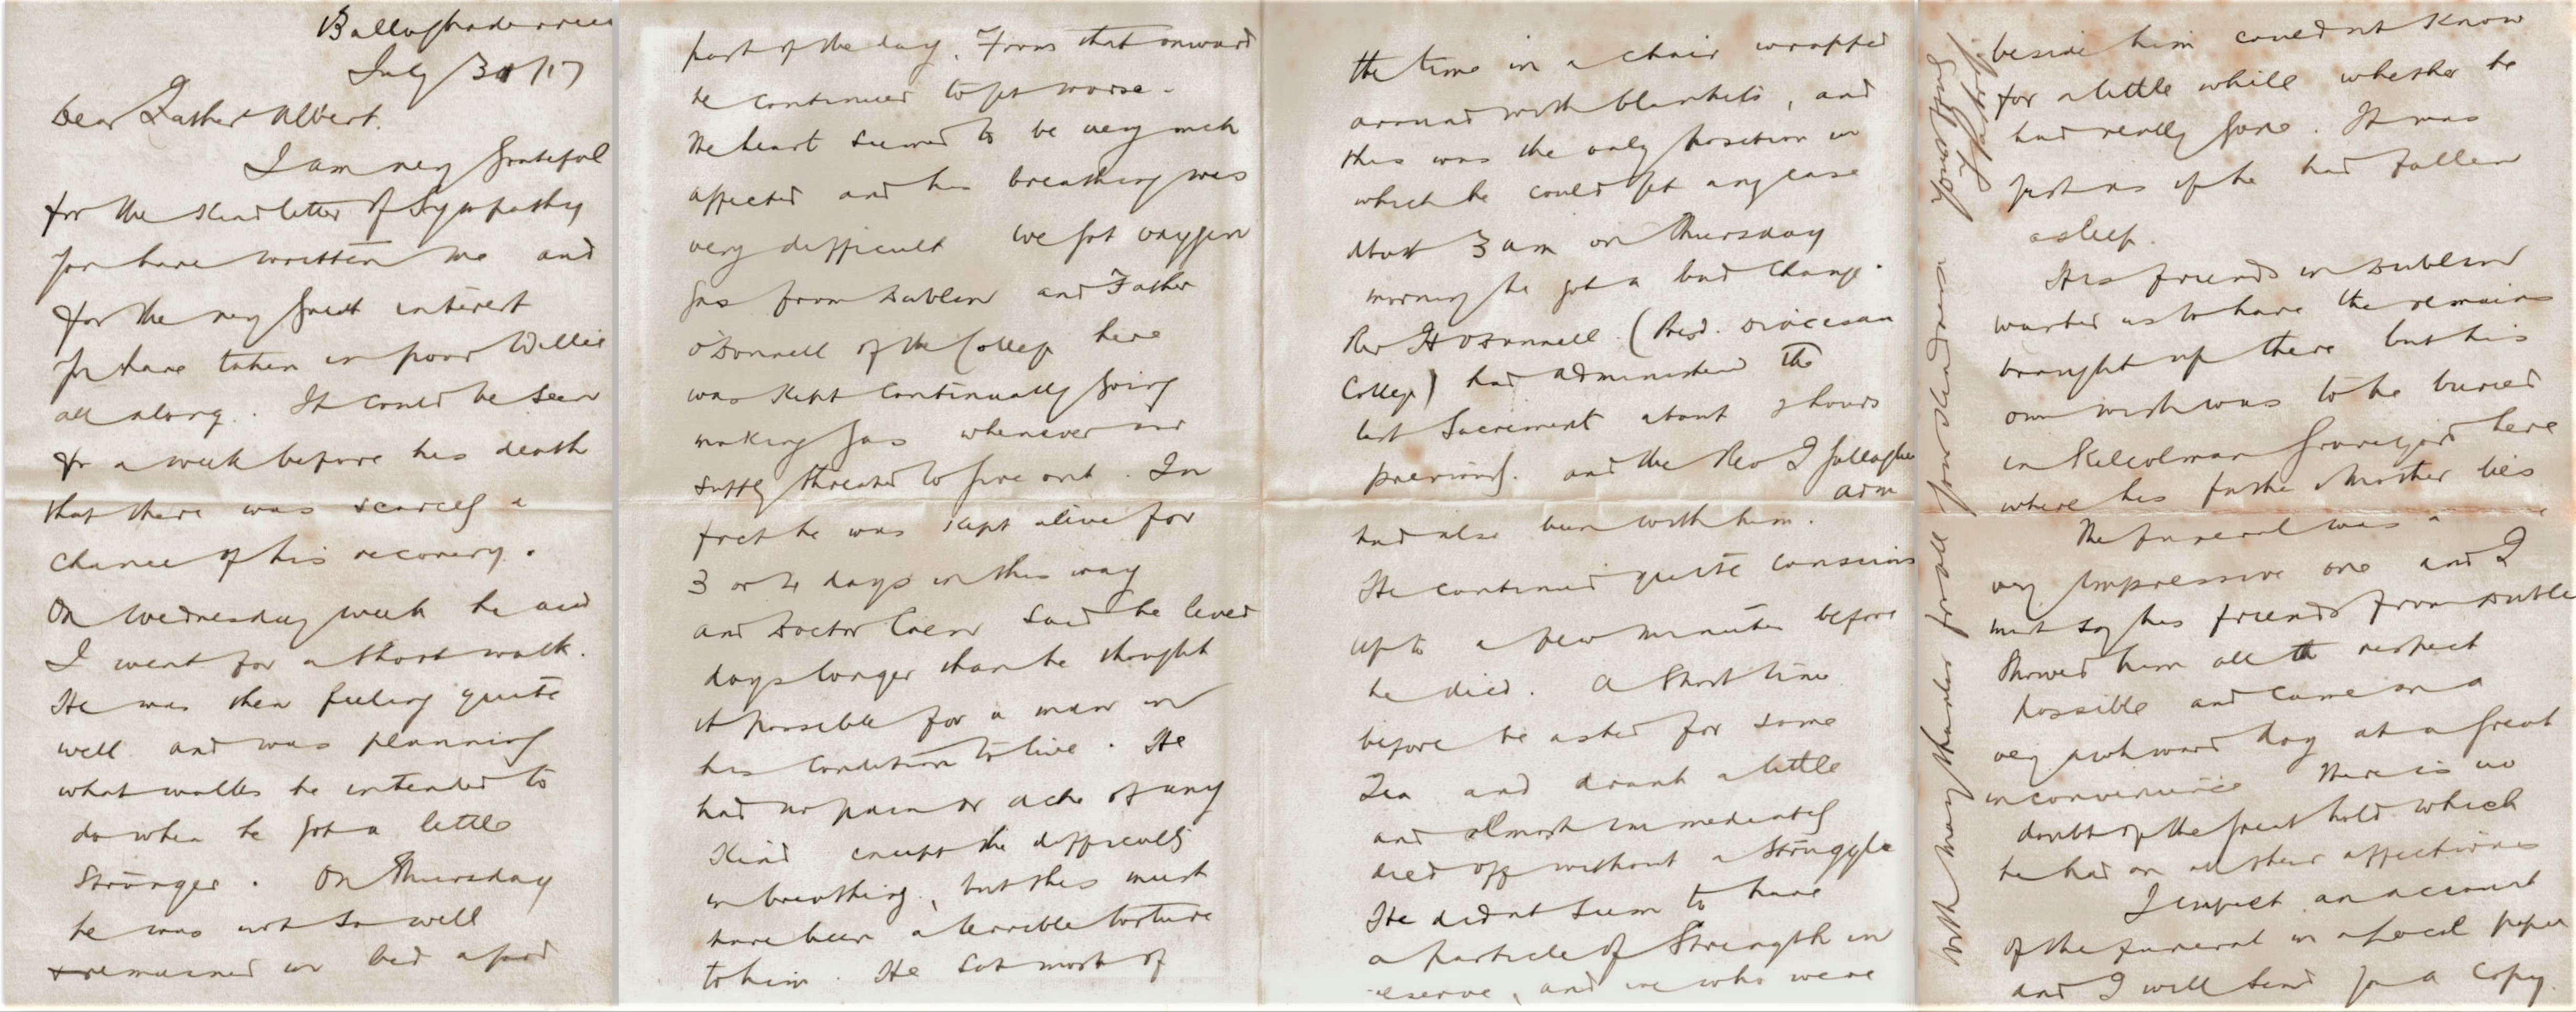 Ballaghaderreen
July 30/17
Dear Father Albert.
I am very grateful
for the kind letter of sympathy
you have written me and
for the very great interest
you have taken in poor Willie
all along. It could be seen
for a week before his death
that there was scarcely a
chance of his recovery.
On Wednesday week he and
I went for a short walk.
He was then feeling quite
well and was planning
what walks he intended to
do when he got a little
stronger. On Thursday
he was not so well
& remained in bed a good
part of the day. From that onward
he continued to get worse.
The heart seemed to be very much
affected and his breathing was
very difficult we got oxygen
gas from Dublin and Father
O'Donnell of the College here
was kept continually going
making gas whenever our
supply threatened to give out. In
fact he was kept alive for
3 or 4 days in this way
and Doctor Coen said he lived
days longer than he thought
it possible for a man in
his condition to live. He
had no pain or ache of any
kind except the difficulty
in breathing, but this must
have been a terrible torture
to him. He sat most of
the time in a chair wrapped
around with blankets, and
this was the only position in
which he could get any ease
About 3 am on Thursday
morning he got a bad change.
Rev H O'Donnell (Pres. Diocesan
College) had administered the
last Sacrament about 2 hours
previously. and the Rev J Gallagher
adm
had also been with him.
He continued quite conscious
up to a few minutes before
he died. A short time
before he asked for some
Tea and drank a little
and almost immediately
died off without a struggle
He didnt seem to have
a particle of strength in
reserve, and we who were
beside him couldnt know
for a little while whether he
had really gone. It was
just as if he had fallen
asleep.
His friends in Dublin
wanted us to have the remains
brought up there but his
own wish was to be buried
in Kilcolman graveyard here
where his father & mother lies
The funeral was a
very impressive one and I
must say his friends from Dublin
showed him all the respect
possible and came on a
very awkward day at a great
inconvenience There is no
doubt of the great hold which
he had on all their affections
I expect an account
of the funeral in a local paper
and I will send you a copy.
With many thanks for all your kindness
Yours truly